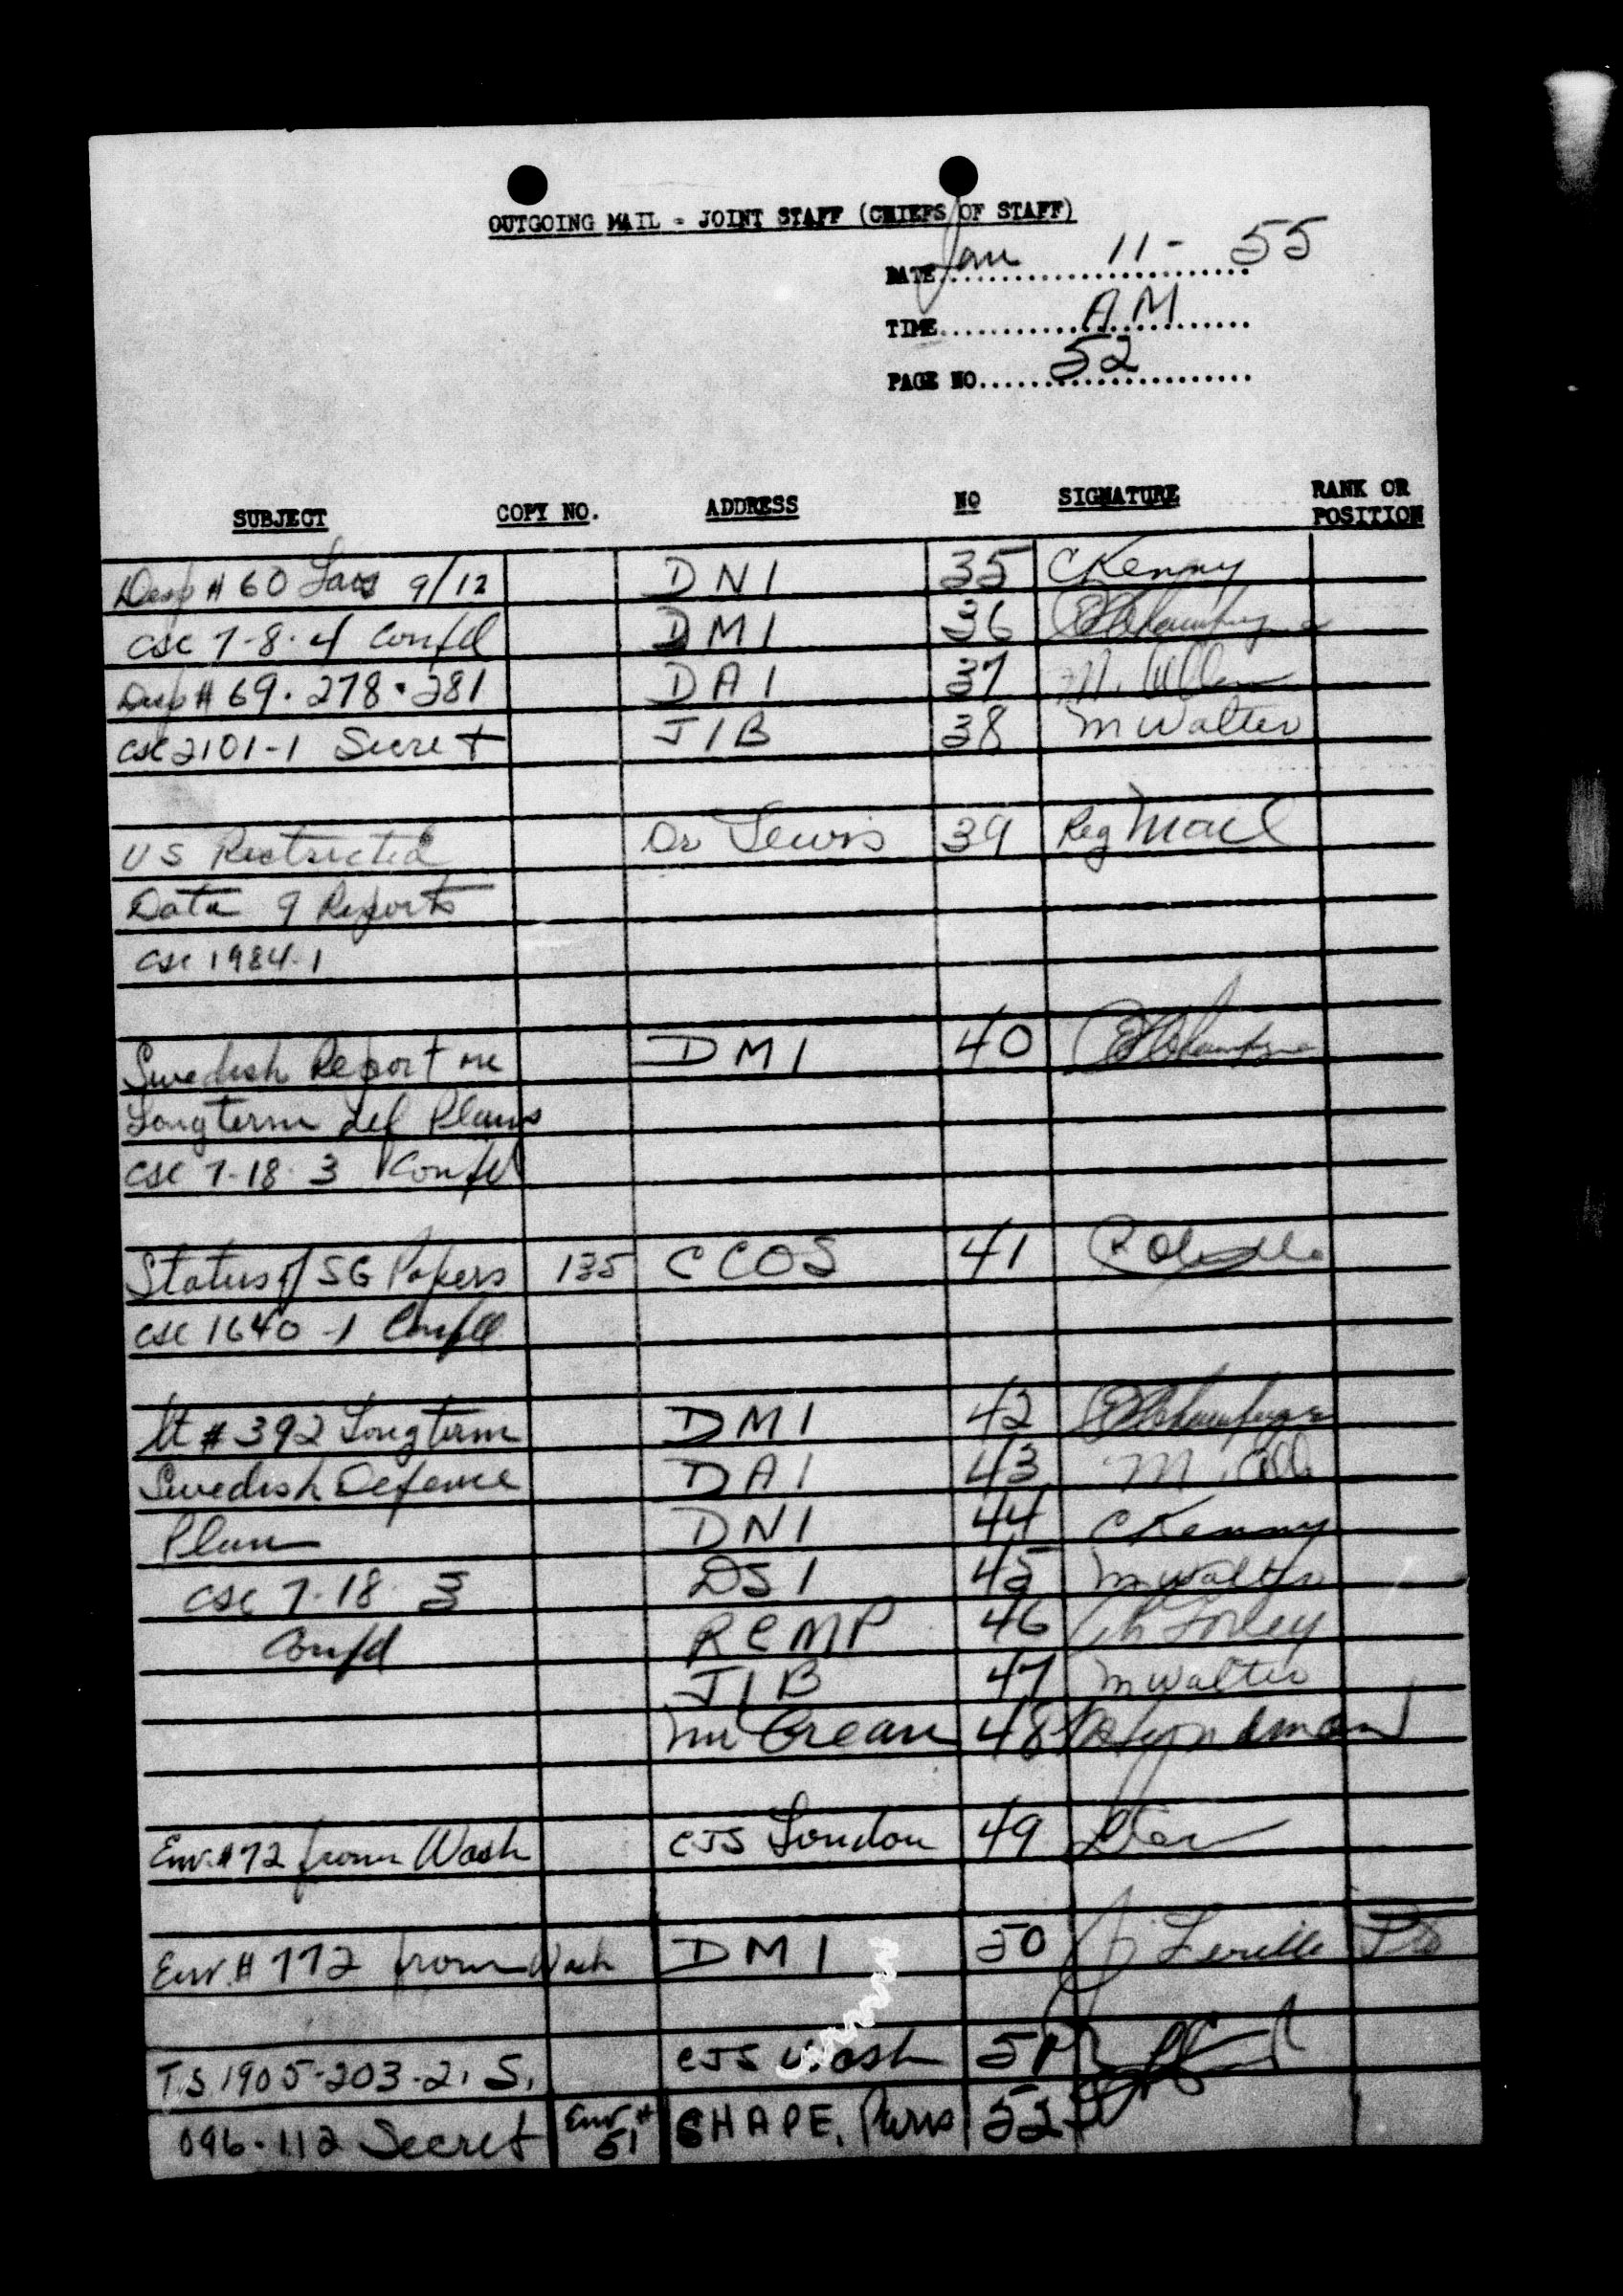 OUTGOING MAIL - JOINT STAFF (CHIEFS OF STAFF)
DATE Jan 11 - 55
TIME AM
PAGE NO. 52
SUBJECT COPY NO. ADDRESS NO SIGNATURE RANK OR POSITION
Desp # 60 Laos 9/12 DNI 35 C Kenny
CSC 7-8.4 Confd DMI 36
Desp # 69.278.281 DAI 37 M.
CSC 2101-1 Secret JIB 38 M Walter
US Restricted Dr Lewis 39 Reg Mail
Data 9 Reports
CSC 1984-1
Swedish Report re DMI 40
Longterm def Plans
CSC 7-18.3 Confd
Status of SG Papers 135 CCOS 41
CSC 1640-1 Confd
lt # 392 Longterm DMI 42
Swedish Defence DAI 43 M.
Plan DNI 44 C Kenny
CSC 7-18.3 DSI 45 M Walter
Confd RCMP 46
JIB 47 M Walter
Mr Crean 48
Env. # 72 from Wash CJS London 49
Env. # 772 from Wash DMI 50
T.S. 1905-203-2. S. CJS Wash 51
096-112 Secret Env # 51 SHAPE, Paris 52